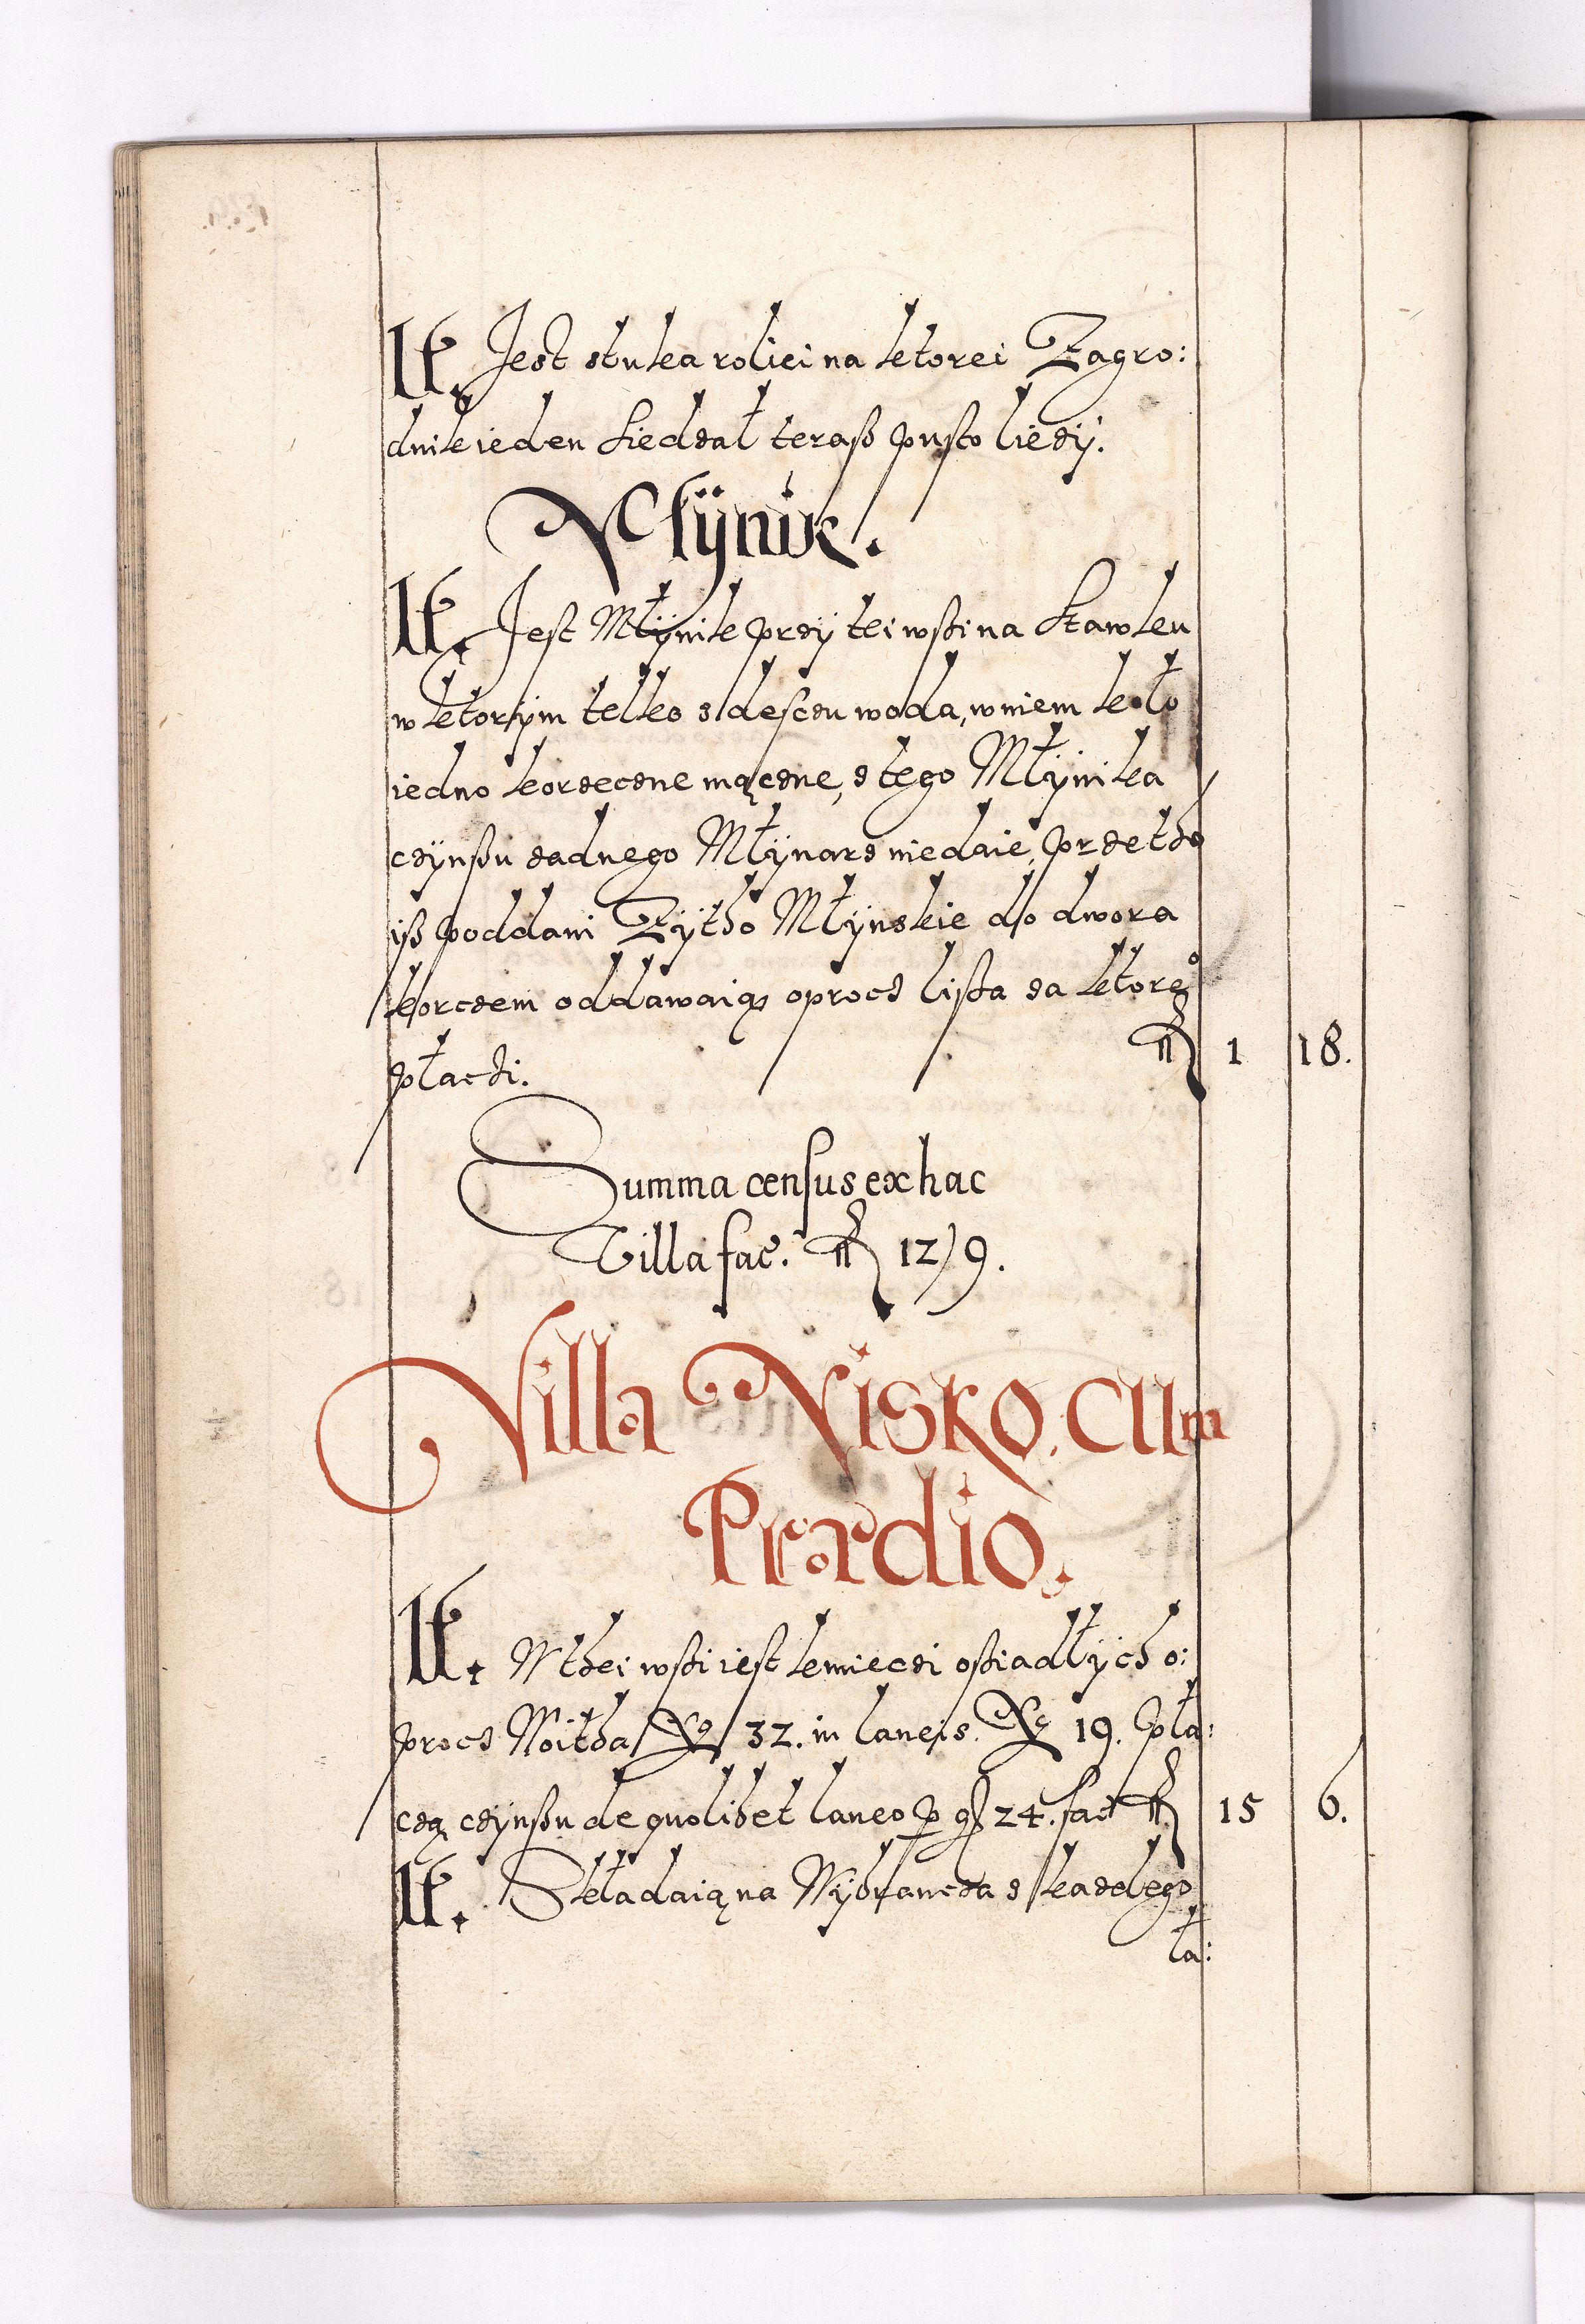 It. Jest stuka roliei na ktorei Zagro:
dnik ieden siedzał teraß pusto lieży.
Młÿnik.
It. Jest Młÿnik przÿ tei wsi na stawku
w ktorÿm telko z desczu woda, w niem koło
iedno korzeczne mączne, z tego Młÿnika
czÿnßu zadnego Młÿnarz nie daie, przetho
iß poddani Zÿtho Młÿnskie do dwora
korczem oddawaią oprocz lissa za ktorę°
płaczi. fl 1 18.
Summa census ex hac
Villa fac. fl 12/9.
Villa Nisko. cum
Prædio.
It. W thei wsi iest kmieczi osiadłÿch o:
procz Woitha No 32. in laneis No 19. pła:
czą czÿnßu de quolibet laneo p gr 24. fac fl 15 6.
It. Składaią na Wÿbrancza z kazdego
ła: